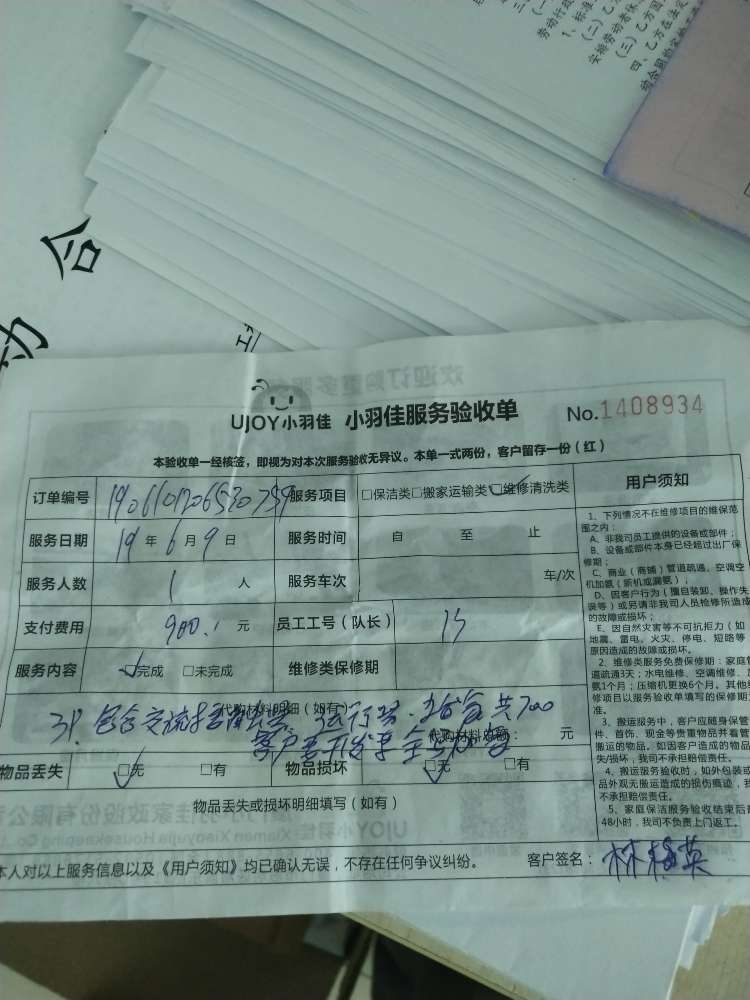 合
动
欢迎订购更多服
UJOY小羽佳 小羽佳服务验收单 No.1408934
本验收单一经核签，即视为对本次服务验收无异议。本单一式两份，客户留存一份（红）
订单编号 服务项目 □保洁类□搬家运输类□维修清洗类
服务日期 19 年 6 月 9 日 服务时间 自 至 止
服务人数 1 人 服务车次 车/次
支付费用 900. 元 员工工号（队长）
服务内容 □完成 □未完成 维修类保修期
代购材料明细（如有）
3P 包含交流接触 共700
代购材料总额： 元
物品丢失 □无 □有 物品损坏 □无 □有
物品丢失或损坏明细填写（如有）
本人对以上服务信息以及《用户须知》均已确认无误，不存在任何争议纠纷。 客户签名：林梅英
用户须知
1、下列情况不在维修项目的维保范
围之内：
A、非我司员工提供的设备或部件；
B、设备或部件本身已经超过出厂保
修期；
C、商业（商铺）管道疏通、空调空
机加氨（新机或漏氨）；
D、因客户行为（擅自装卸、操作失
误等）或另请非我司人员检修所造成
的故障或损坏；
E、因自然灾害等不可抗拒力（如
地震、雷电、火灾、停电、短路等
原因造成的故障或损坏。
2、维修类服务免费保修期：家庭管
道疏通3天；水电维修、空调维修、加
氨1个月；压缩机更换6个月。其他维
修项目以服务验收单填写的保修期
准。
3、搬运服务中，客户应随身保管
件、首饰、现金等贵重物品并看管
搬运的物品。如因客户造成的物品
失/损坏，我司不承担赔偿责任。
4、搬运服务验收时，如外包装或
品外观无搬运造成的损伤痕迹，我
不承担赔偿责任。
5、家庭保洁服务验收结束后超
48小时，我司不负责上门返工。